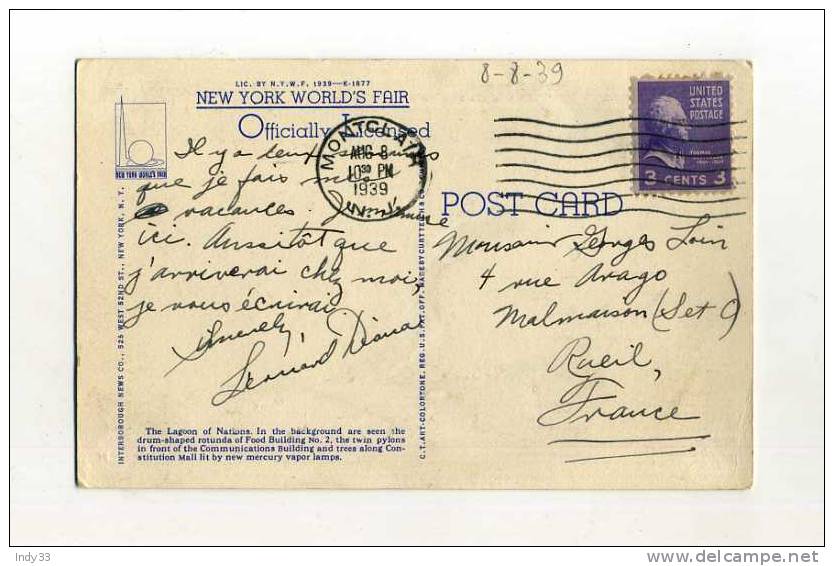 8-8-39
LIC. BY N.Y.W.F. 1939—K-1877
NEW YORK WORLD'S FAIR
Officially Licensed
NEW YORK WORLD'S FAIR
MONTCLAIR
AUG 8
10 30 PM
1939
N.J.
UNITED
STATES
POSTAGE
3 CENTS 3
POST CARD
Il y a deux
que je fais
vacances. J'aime
ici. Aussitôt que
j'arriverai chez moi,
je vous écrirai
Sincerely,
Monsieur Georges
4 rue Arago
Malmaison (Set O)
Rueil,
France
The Lagoon of Nations. In the background are seen the
drum-shaped rotunda of Food Building No. 2, the twin pylons
in front of the Communications Building and trees along Con-
stitution Mall lit by new mercury vapor lamps.
INTERBOROUGH NEWS CO., 525 WEST 52ND ST., NEW YORK, N. Y.
C.T. ART-COLORTONE, REG. U.S. PAT. OFF. MADE BY CURT TEICH & CO
Indy33
delcampe.net